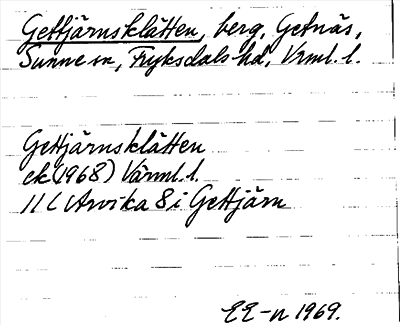 Gettjärnsklätten, berg, Getnäs,
Sunne sn, Fryksdals hd, Vrml. l.
Gettjärnsklätten
ek (1968) Värml. l.
11 C Arvika 8 i Gettjärn
EE-n 1969.